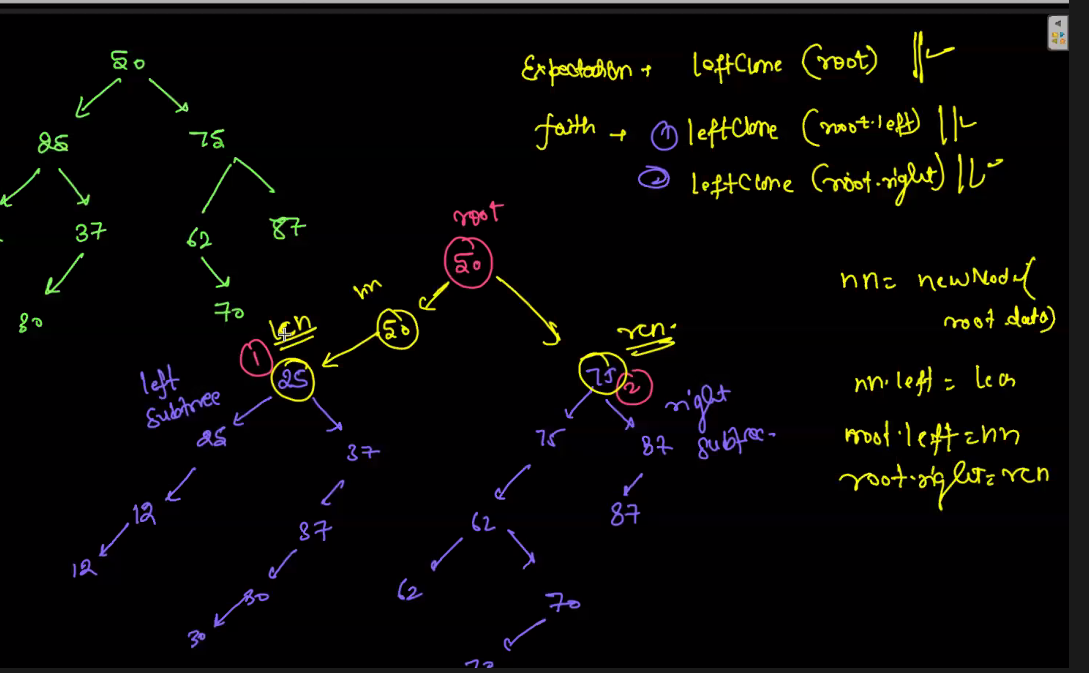 50
25 75
37 62 87
30 70
Expectation → leftClone (root)
faith → ① leftClone (root.left)
② leftClone (root.right)
root
50
nn
50
lcn
1
25
rcn.
75
2
left
subtree
right
subtree.
25 37
75 87
12 37
62 87
12 30
62 70
30
nn = newNode(
root.data)
nn.left = lcn
root.left = nn
root.right = rcn